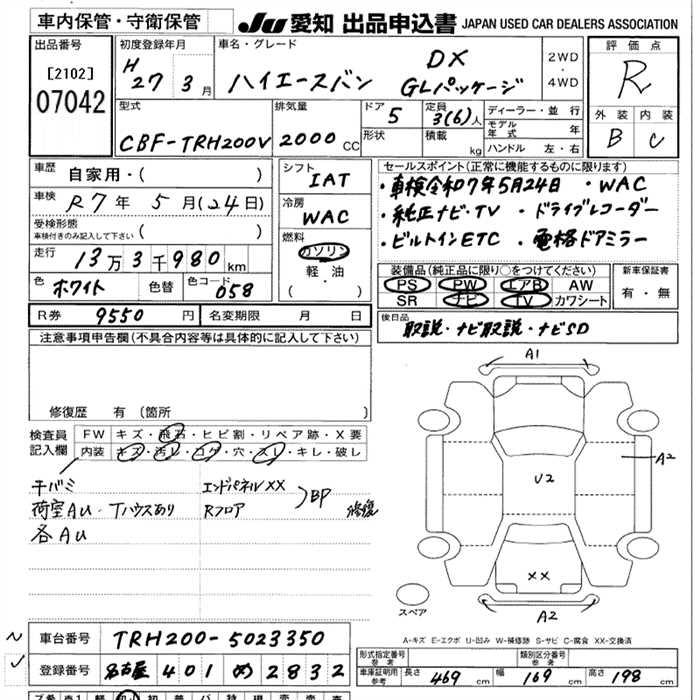 車内保管・守衛保管
JU 愛知 出品申込書 JAPAN USED CAR DEALERS ASSOCIATION
出品番号
[2102]
07042
初度登録年月
H 27年 3月
車名・グレード
ハイエースバン DX GLパッケージ
2WD・4WD
評価点
R
外装 内装
B C
型式
CBF-TRH200V
排気量
2000 CC
ドア 5
形状
定員 3(6)人
積載 kg
ディーラー・並行
モデル年式 年
ハンドル 左・右
車歴 自家用・( )
車検 R7年 5月(24日)
受検形態
車検付きのみ記入して下さい ( )
走行 13万3千980km
色 ホワイト 色替 色コード 058
シフト IAT
冷房 WAC
燃料 ガソリン
軽・油
( ・ )
セールスポイント(正常に機能するものに限ります)
・車検令和7年5月24日 ・WAC
・純正ナビ・TV ・ドライブレコーダー
・ビルトインETC ・電格ドアミラー
装備品(純正品に限り○をつけてください)
PS PW エアB AW
SR ナビ TV カワシート
新車保証書
有・無
R券 9550円 名変期限 月 日
後日品
取説・ナビ取説・ナビSD
注意事項申告欄(不具合内容等は具体的に記入して下さい)
修復歴 有 (箇所 )
検査員記入欄
FW キズ・飛石・ヒビ割・リペア跡・X要
内装 キズ・汚レ・コゲ・穴・スレ・キレ・破レ
干バミ
荷室AU・Tハウスあり
各AU
エンドパネルXX
Rフロア
BP 修復
A1
A2
U2
XX
A2
スペア
A-キズ E-エクボ U-凹み W-補修跡 S-サビ C-腐食 XX-交換済
車台番号 TRH200-5023350
登録番号 名古屋 401 め 2832
形式指定番号 参考
類別区分番号 参考
車庫証明用 参考 長さ 469 cm 幅 169 cm 高さ 198 cm